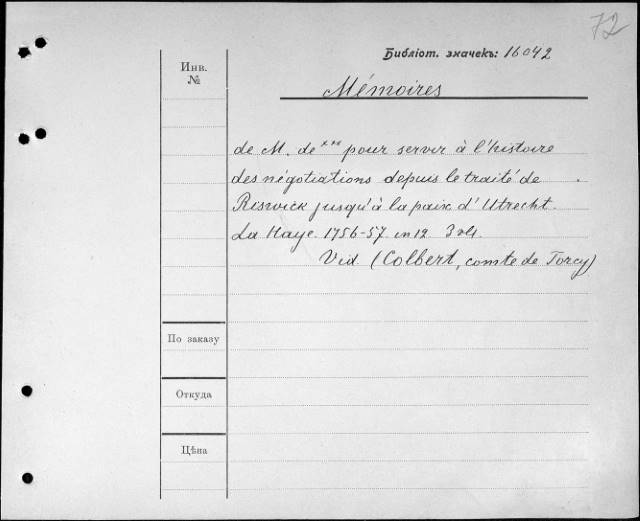 72
Библіот. значекъ: 16042
Инв.
№
Mémoires
de M. de *** pour servir à l'histoire
des négotiations depuis le traité de
Riswick jusqu'à la paix d'Utrecht.
La Haye. 1756-57. in 12. 3 vls.
Vid. (Colbert, comte de Torcy)
По заказу
Откуда
Цѣна